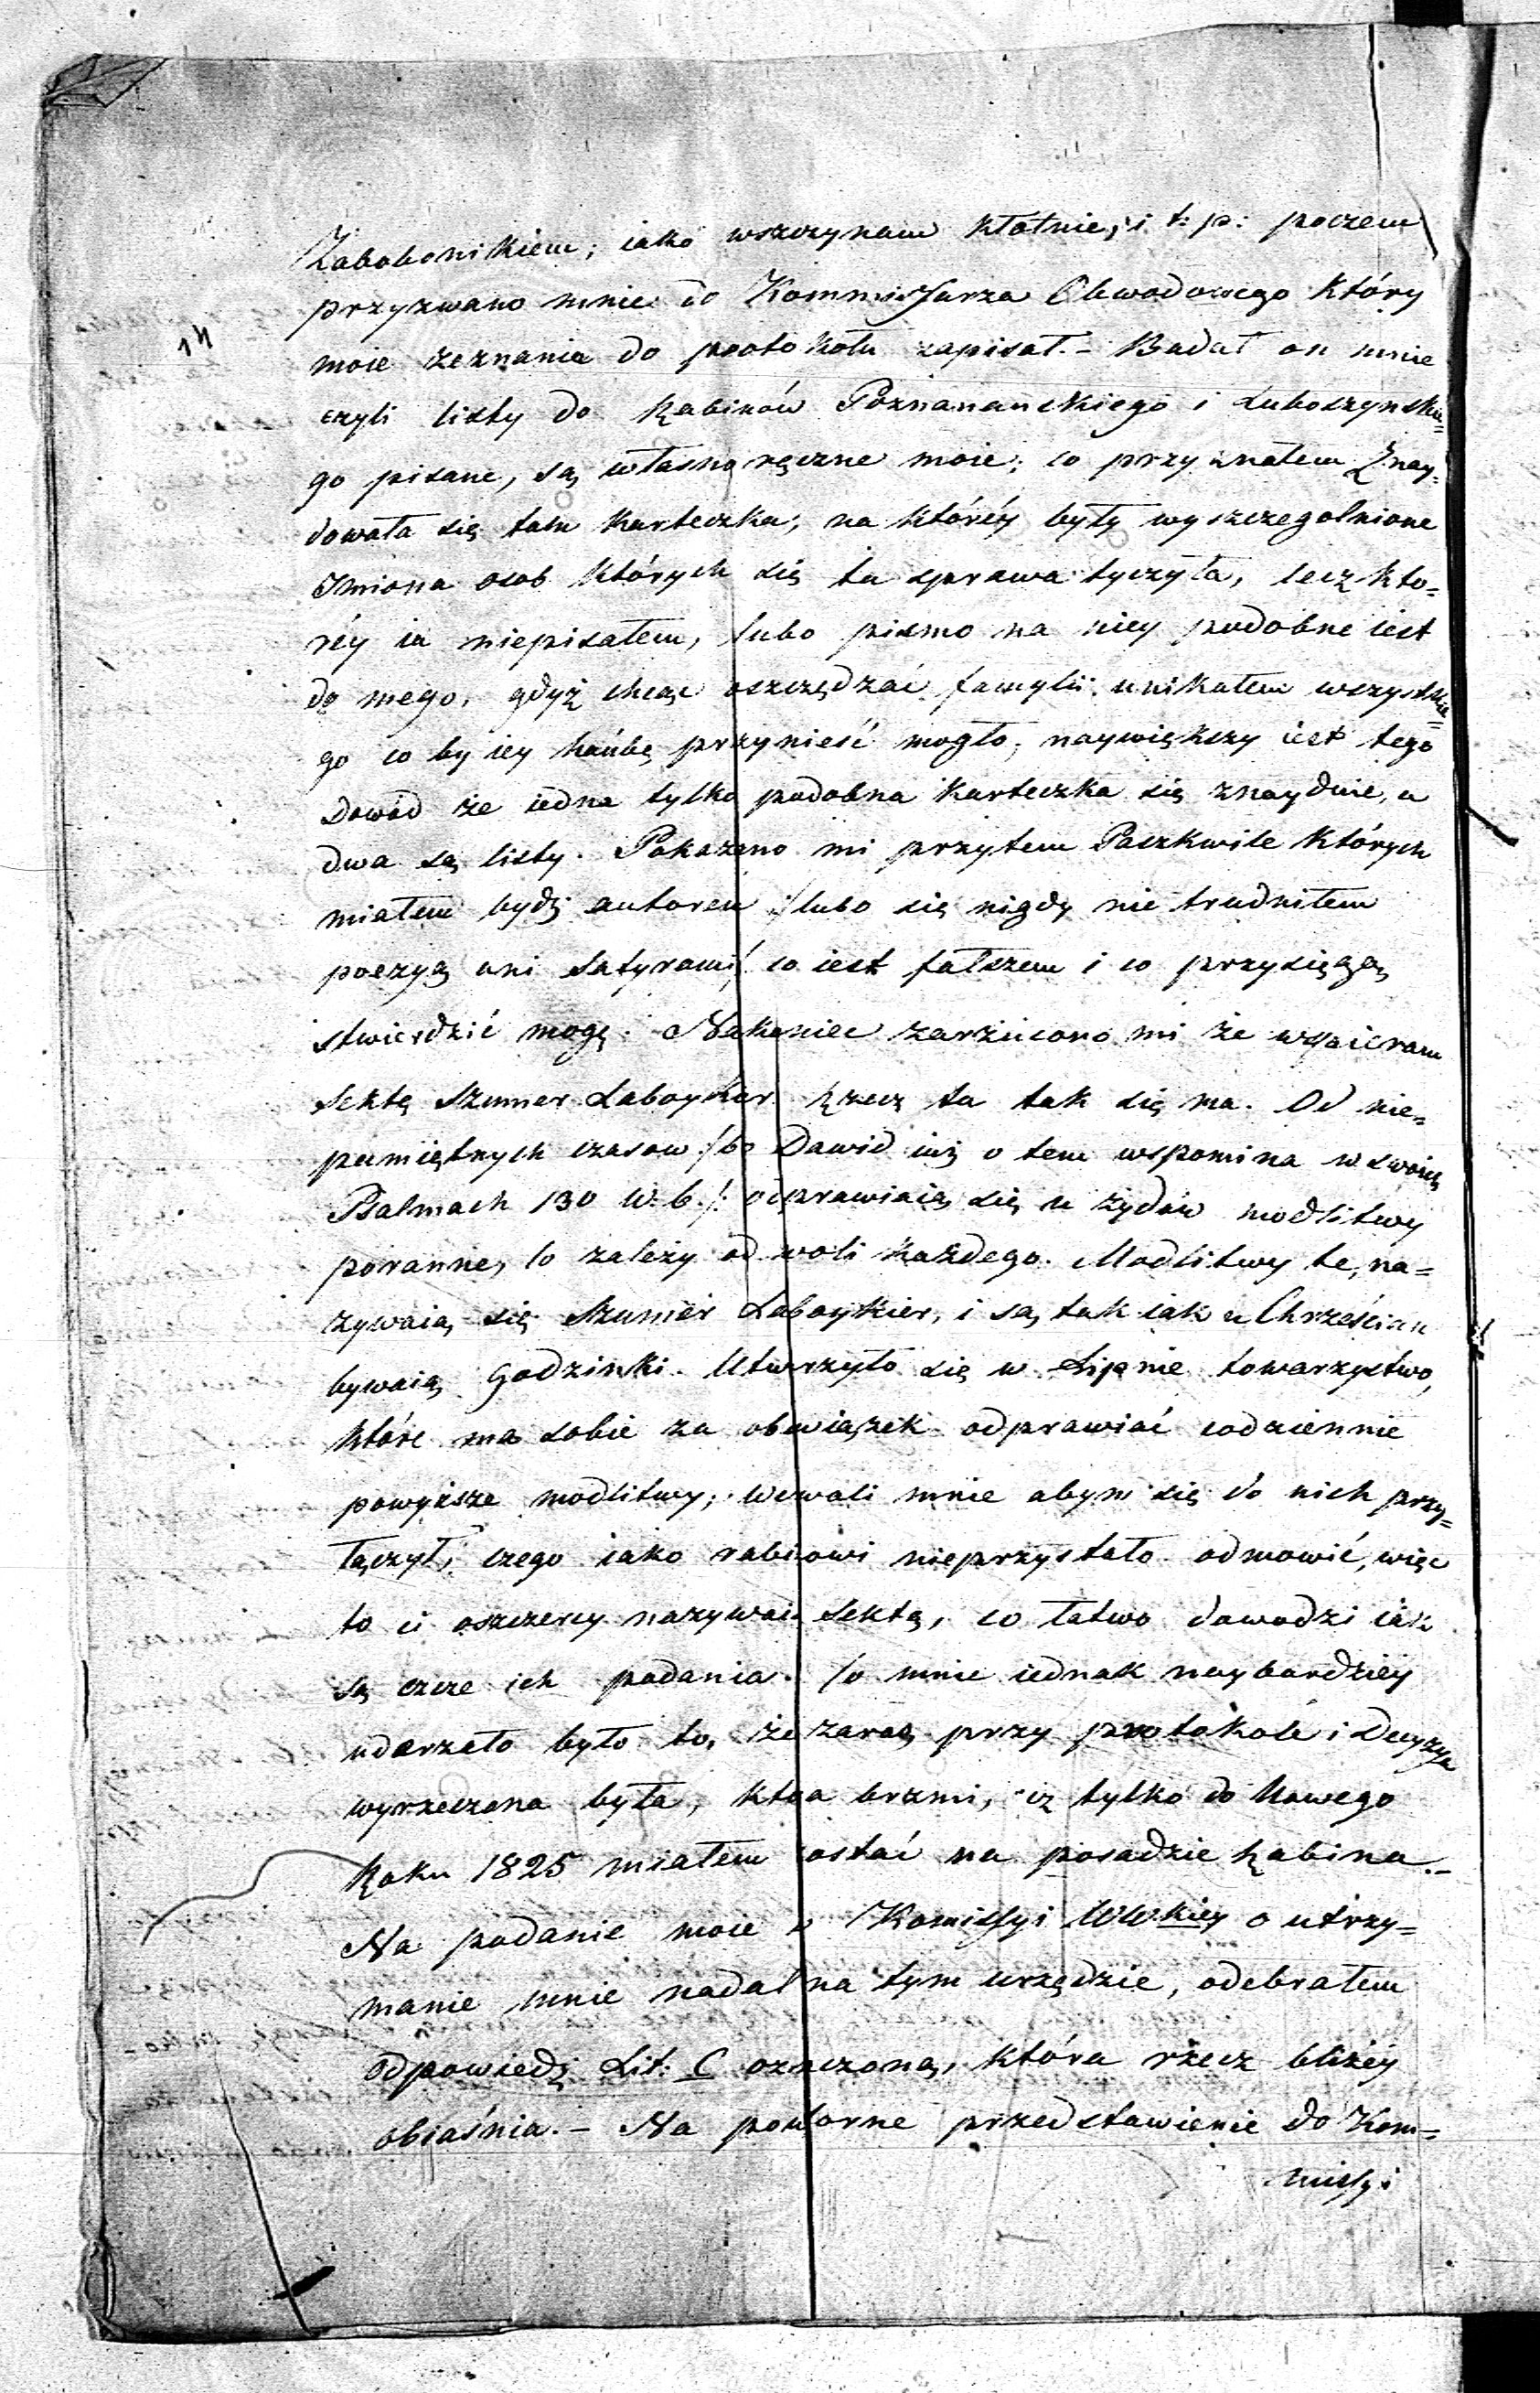 Zabobonikiem; iako wszczynam kłótnie, i t: p: poczem
przyzwano mnie do Kommissarza Obwodowego który
14
moie zeznania do protokołu zapisał. – Badał on mnie
czyli listy do Rabinów Poznananskiego i Luboszynskie=
go pisane, są własnoręczne moie; co przyznałem Znay=
dowała się tam karteczka, na któréy były wyszczegolnione
Imiona osob których się ta sprawa tyczyła, lecz kto=
réy ia niepisałem, lubo pismo na niey podobne iest
do mego, gdyż chcąc oszczędzać familii unikałem wszystkie=
go co by iey hańbę przynieść mogło, naywiększy iest tego
Dowód że iedna tylko podobna karteczka się znayduie, a
dwa są listy. Pokazano mi przytem Paszkwile których
miałem bydź autorem /lubo się nigdy nie trudniłem
poezyą ani Satyrami/ co iest fałszem i co przysięgą
stwierdzić mogę. Nakoniec zarzucono mi że wspieram
Sektę Szumer Laboykier. Rzecz ta tak się ma. Od nie=
pamiętnych czasow /bo Dawid iuż o tem wspomina w swoich
Psalmach 130 W. 6./: odprawiaią się u żydów modlitwy
poranne, to zależy od woli każdego. Modlitwy te, na=
zywaią się Szumer Laboykier, i są tak iak u Chrześcian
bywaią Godzinki. Utworzyło się w Lipnie towarzystwo,
które ma sobie za obowiązek odprawiać codziennie
powyższe modlitwy; wezwali mnie abym się do nich przy=
łączył, czego iako rabinowi nieprzystało odmowić, więc
to ci oszczercy nazywaią Sektą, co łatwo dowodzi iak
są czcze ich podania. Co mnie iednak naybardziéy
uderzało było to, że zaraz przy protokole i Decyzya
wyrzeczona była, ktora brzmi, iż tylko do Nowego
Roku 1825 miałem zostać na posadzie Rabina. –
Na podanie moie do Komissyi WWkiey o utrzy=
manie mnie nadal na tym urzędzie, odebrałem
odpowiedź Lit: C oznaczoną, która rzecz bliżéy
obiaśnia. – Na powtorne przedstawienie do Kom=
missyi